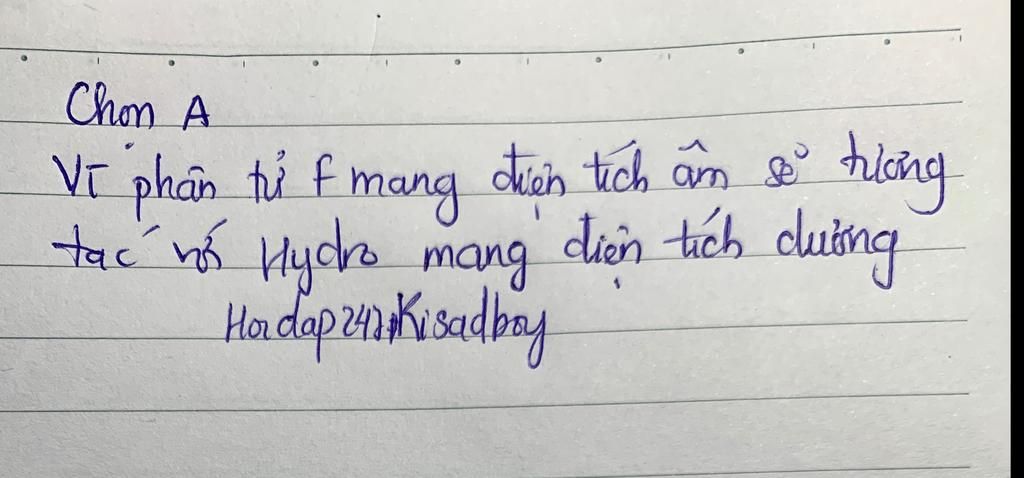 Chọn A
Vì phân tử F mang điện tích âm sẽ tương
tác với Hydro mang điện tích dương
Hoidap247, Kisadboy